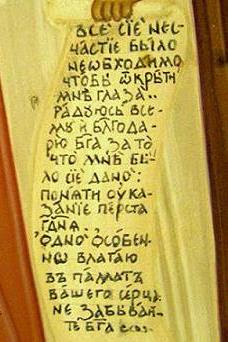 ВСЕ СІЕ НЕС-
ЧАСТІЕ БЫЛО
НЕѠБХОДИМО
ЧТОБЫ ѾКРЫТИ
МНѢ ГЛАЗА..
РАДУЮСЬ ВСЕ-
МУ И БЛГОДА-
РЮ БГА ЗА ТО
ЧТО МНѢ БЫ-
ЛО СІЕ ДАНО:
ПОНѦТИ ОУКА-
ЗАНІЕ ПЕРСТА
ГДНѦ..
ѺДНО ѺСОБЕН-
НѠ ВЛАГАЮ
ВЪ ПАМѦТЬ
ВАШЕГО СЕРЦА:
НЕ ЗАБЫВАИ-
ТЕ БГА